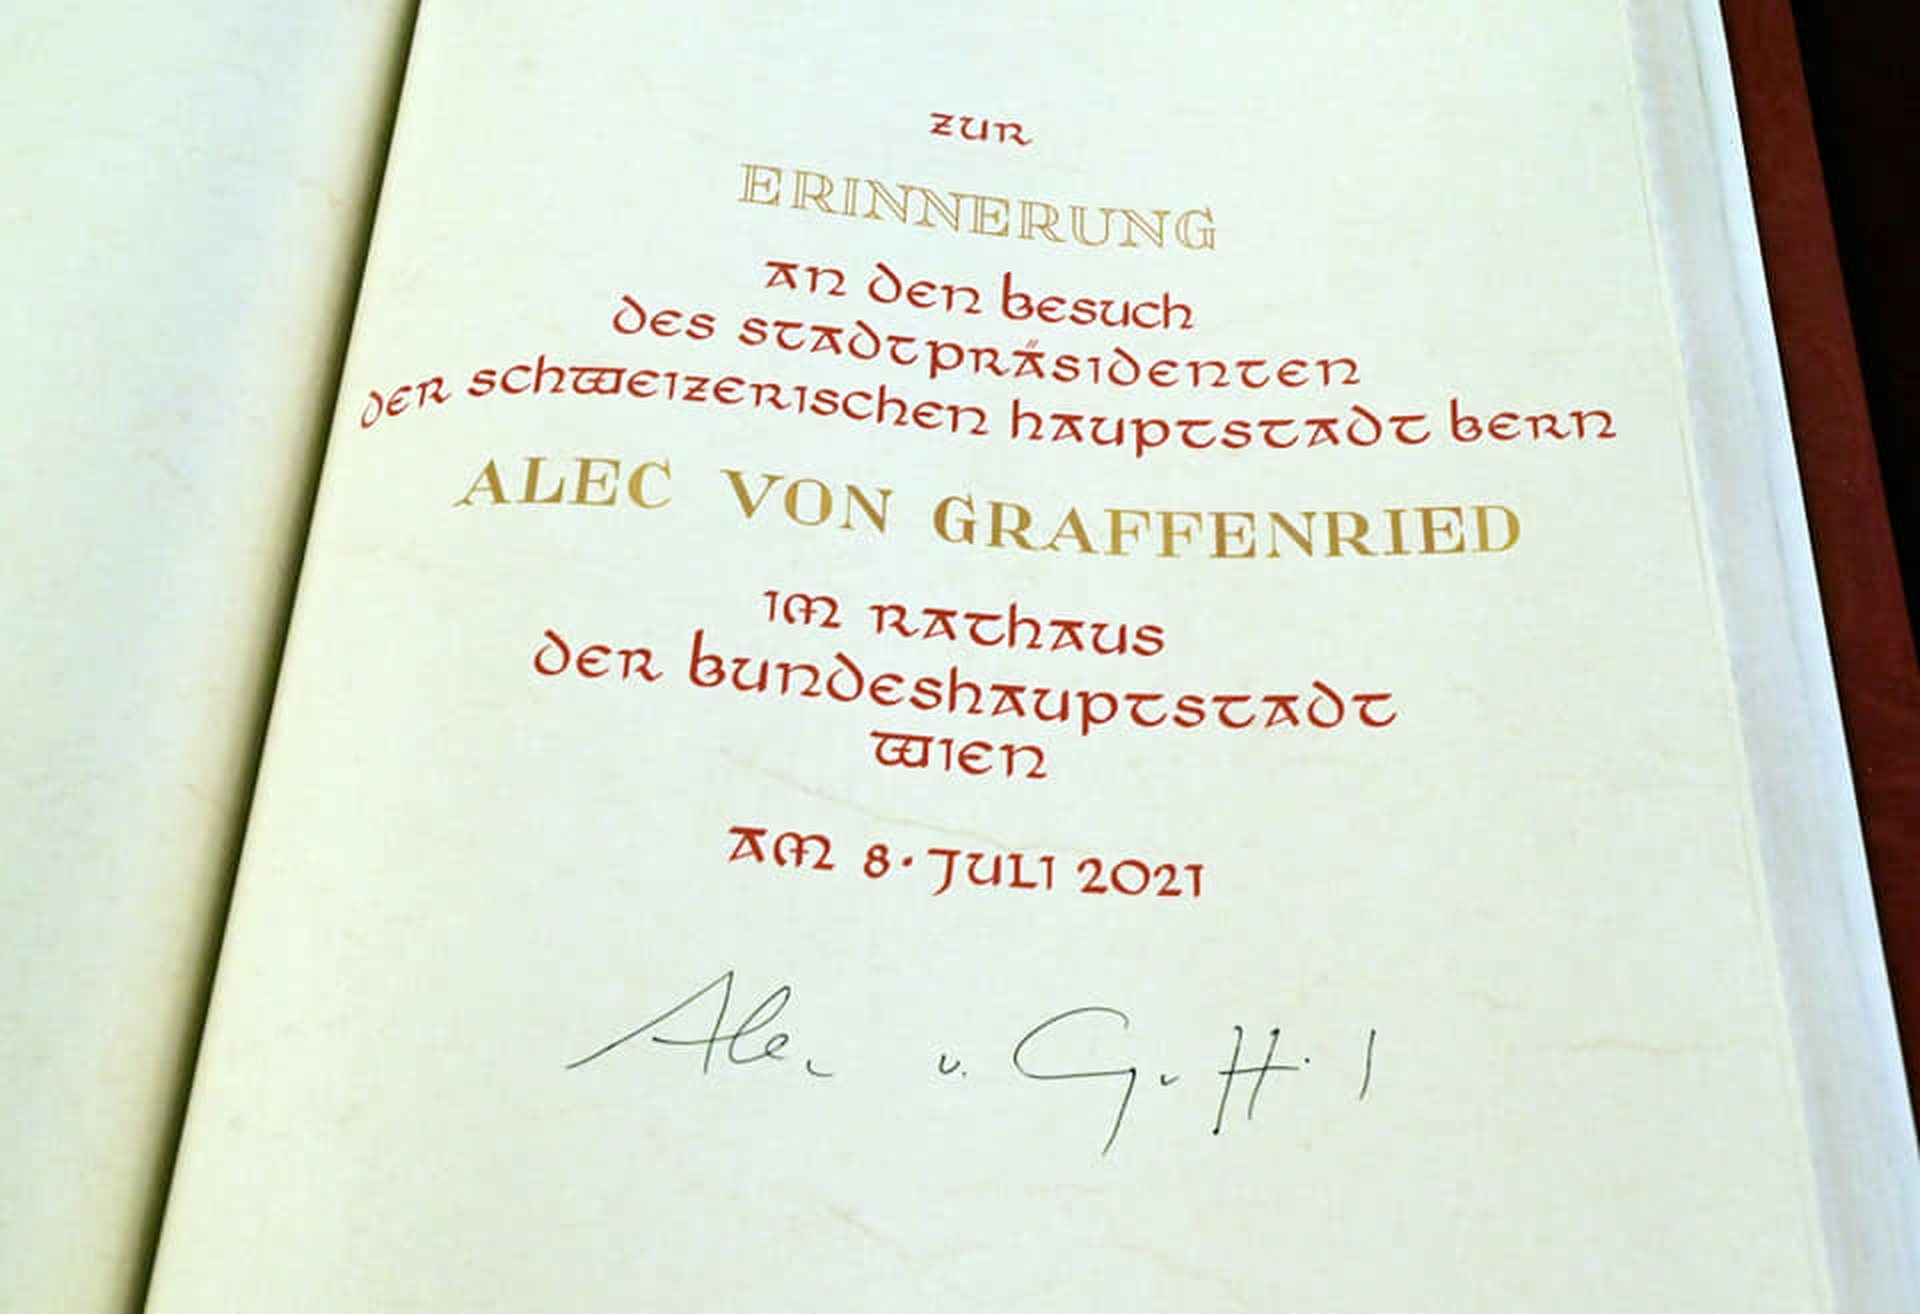 zur
ERINNERUNG
an den besuch
des stadtpräsidenten
der schweizerischen hauptstadt bern
ALEC VON GRAFFENRIED
im rathaus
der bundeshauptstadt
wien
am 8. Juli 2021
Alec v. Graffenried